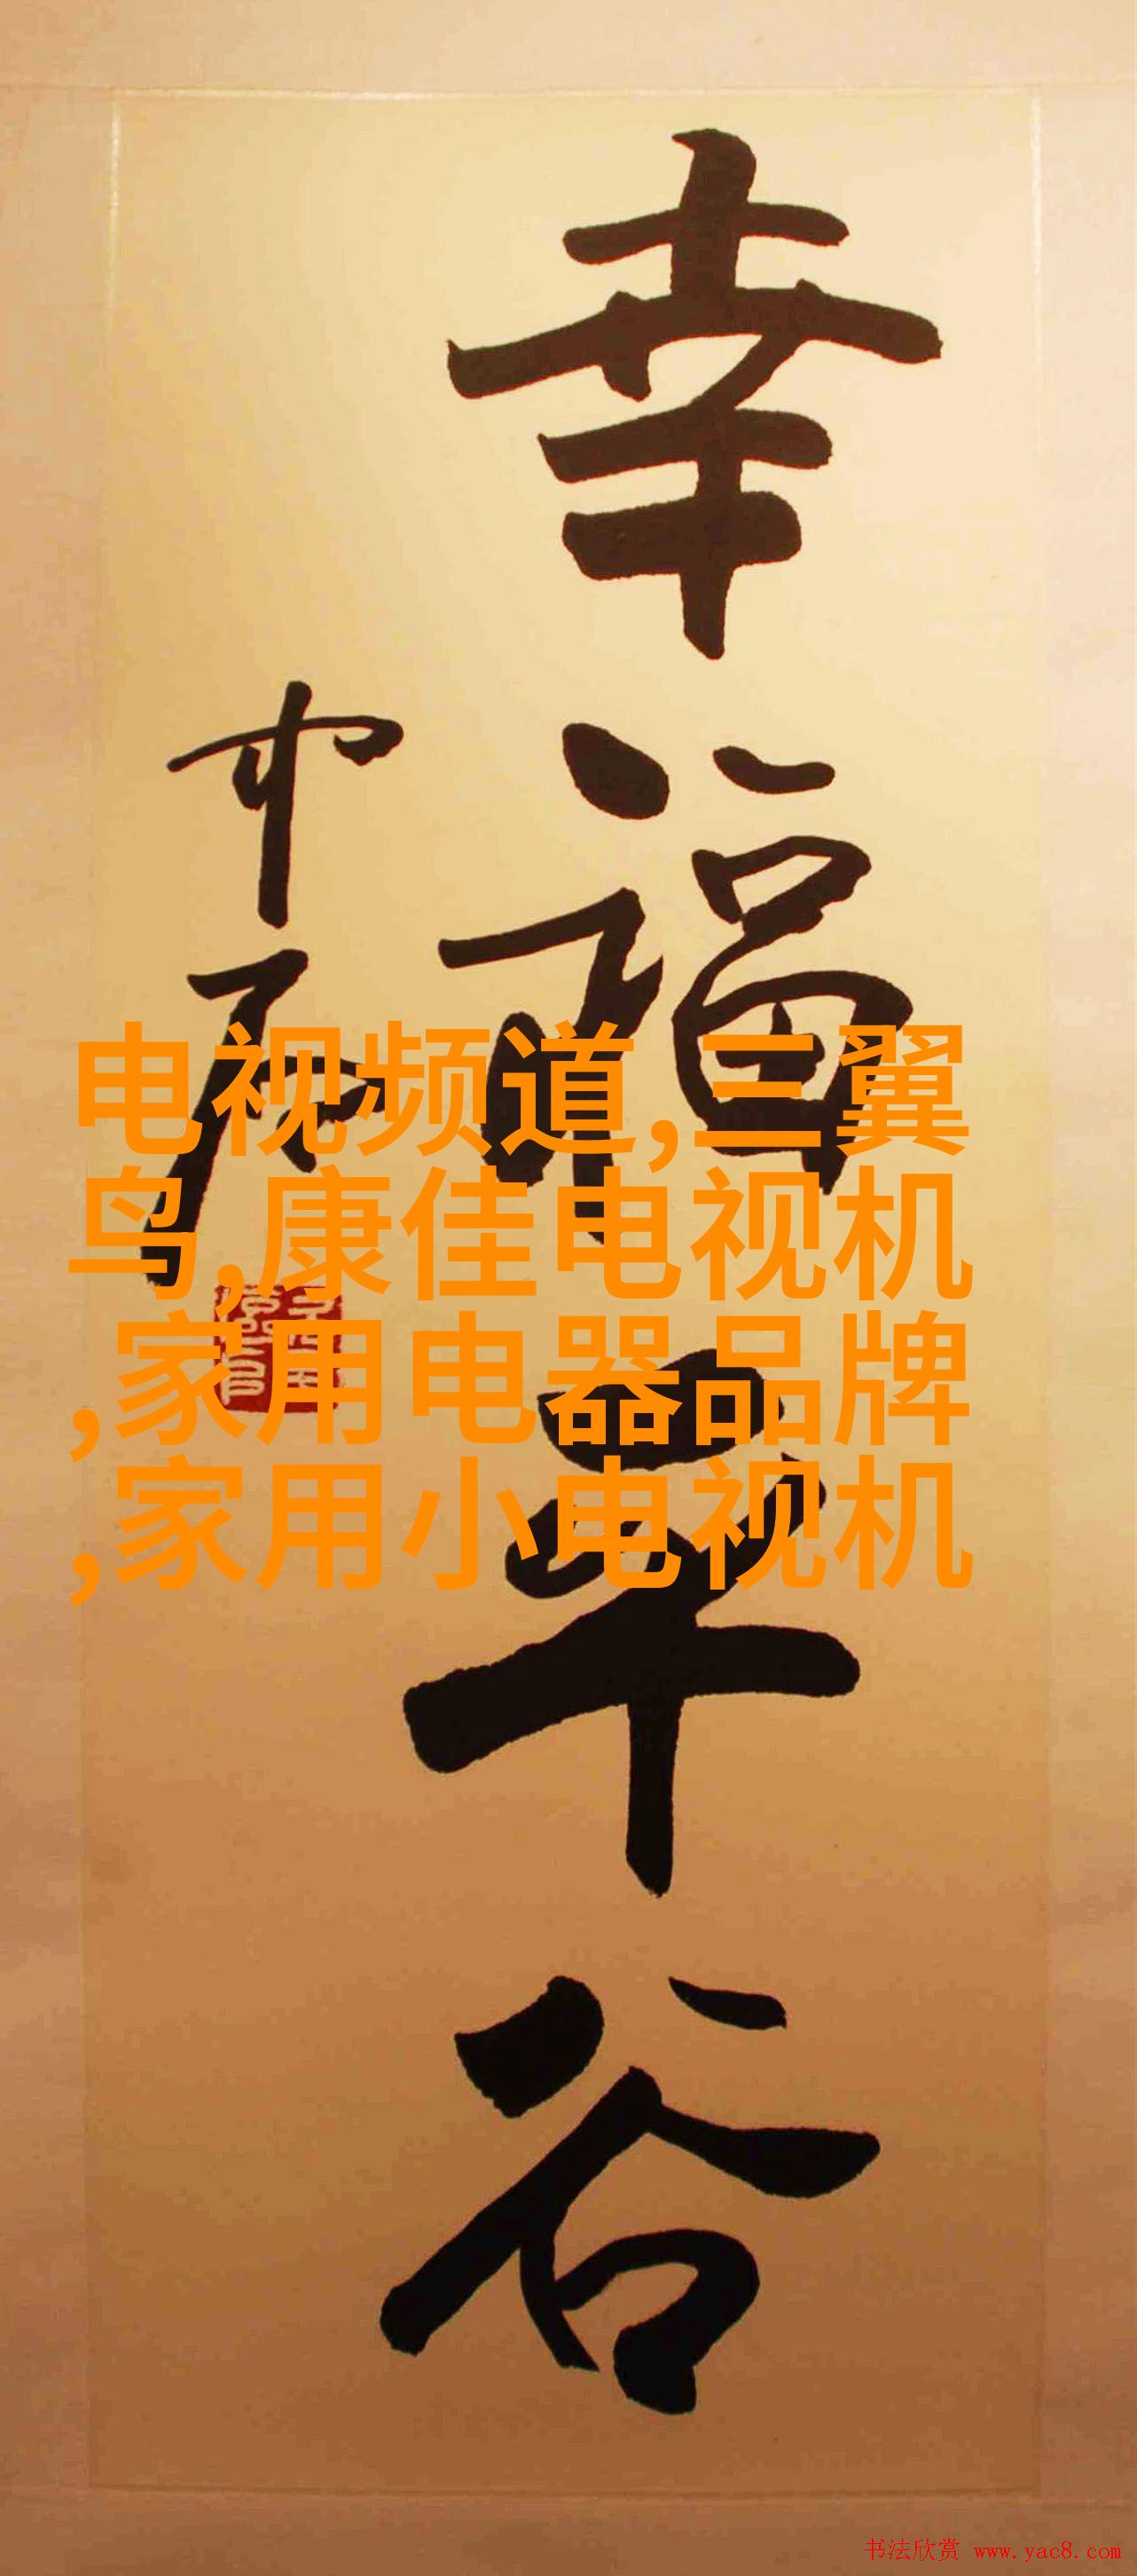 幸福平谷
电视频道,三翼
鸟,康佳电视机
,家用电器品牌
,家用小电视机
书法欣赏 www.yac8.com